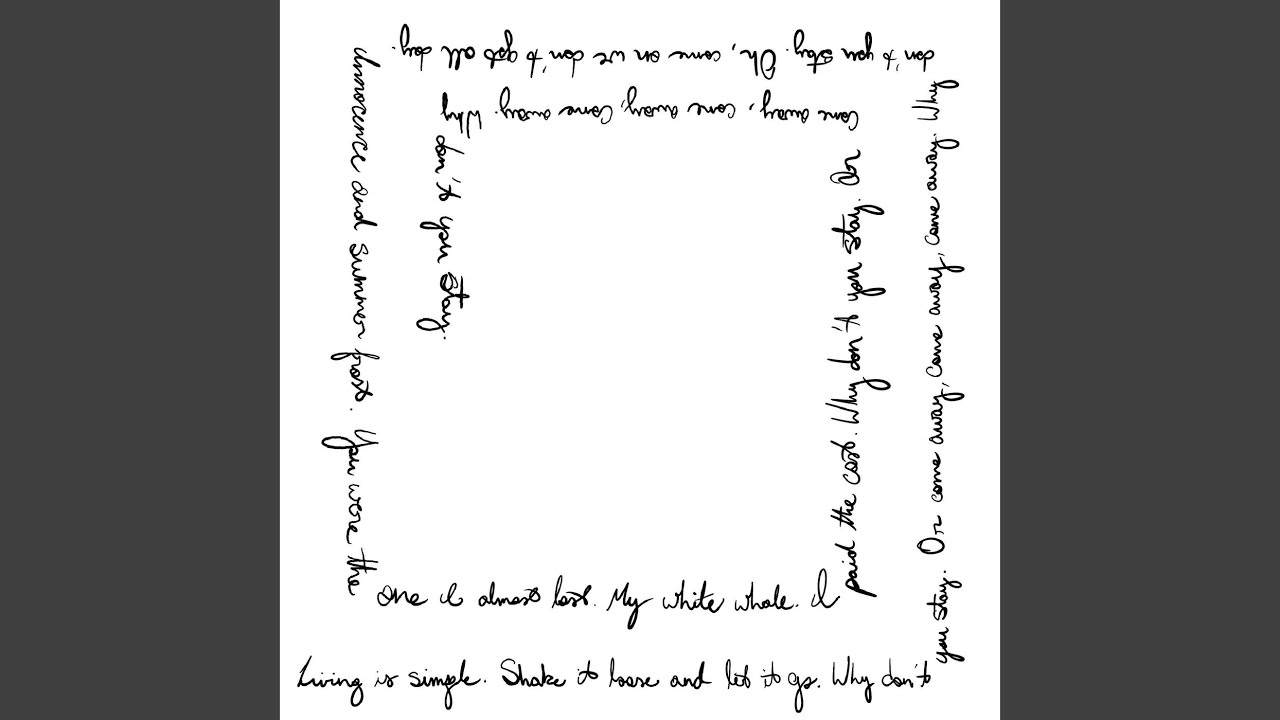 Living is simple. Shake it loose and let it go. Why don't
you stay. Or come away, come away, come away. Why
don't you stay. Oh, come on we don't got all day.
Innocence and summer frost. You were the
one I almost lost. My white whale. I
paid the cost. Why don't you stay. Or
come away, come away, Come away. Why
don't you stay.